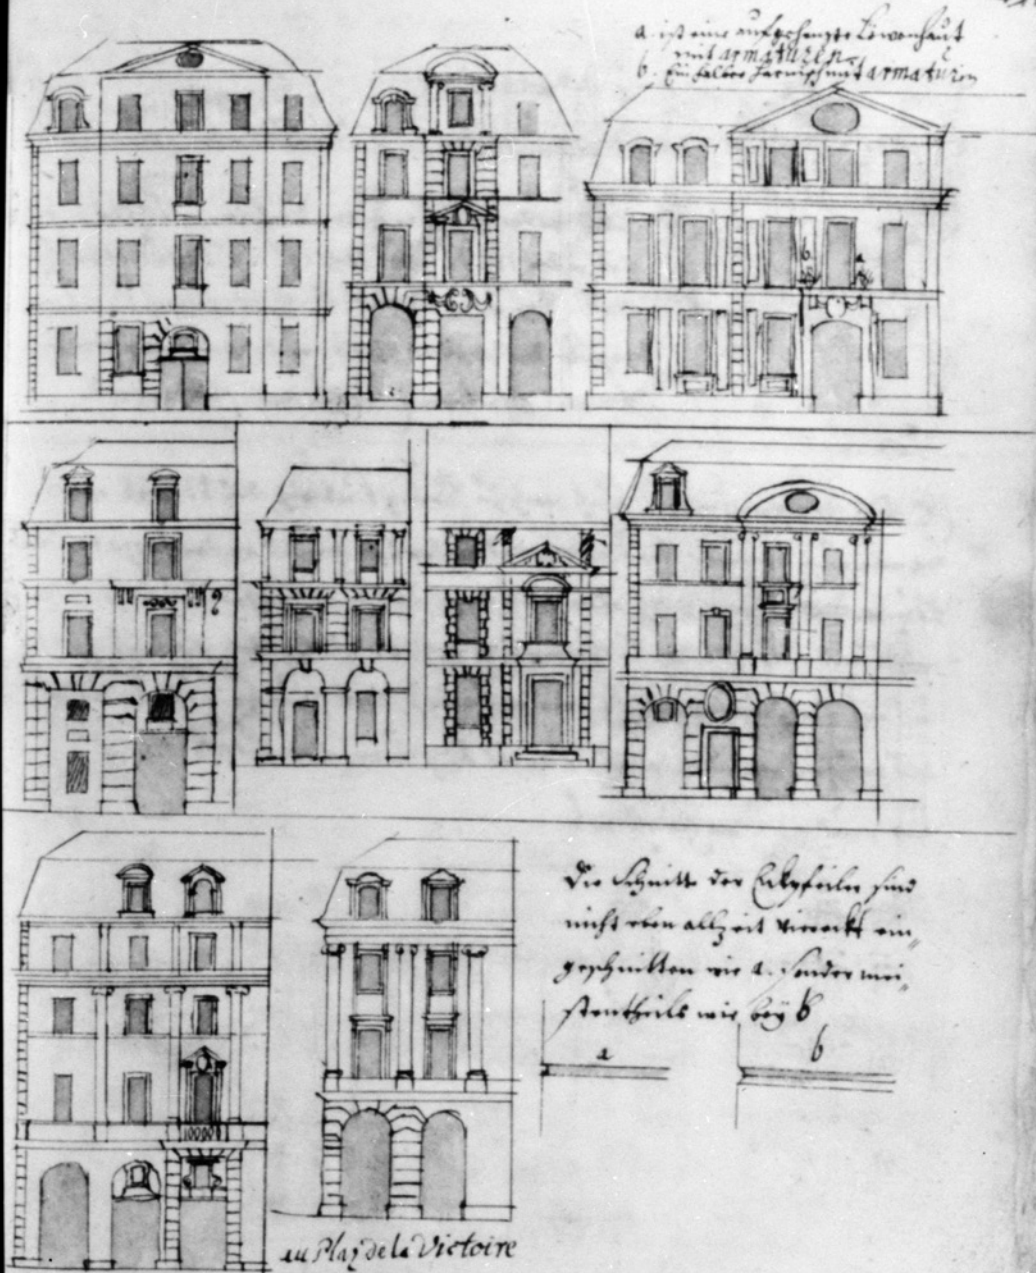 a. ist eine aufgehengte Löwenhaut
mit armaturen.
b. Ein halber harnisch mit armaturen
b
a
Die Schnitte der Eckpfeiler sind
nicht eben allzeit viereckt ein
geschnitten wie a. sonder mei
stentheils wie beÿ b
a b
au Plaz de la Victoire